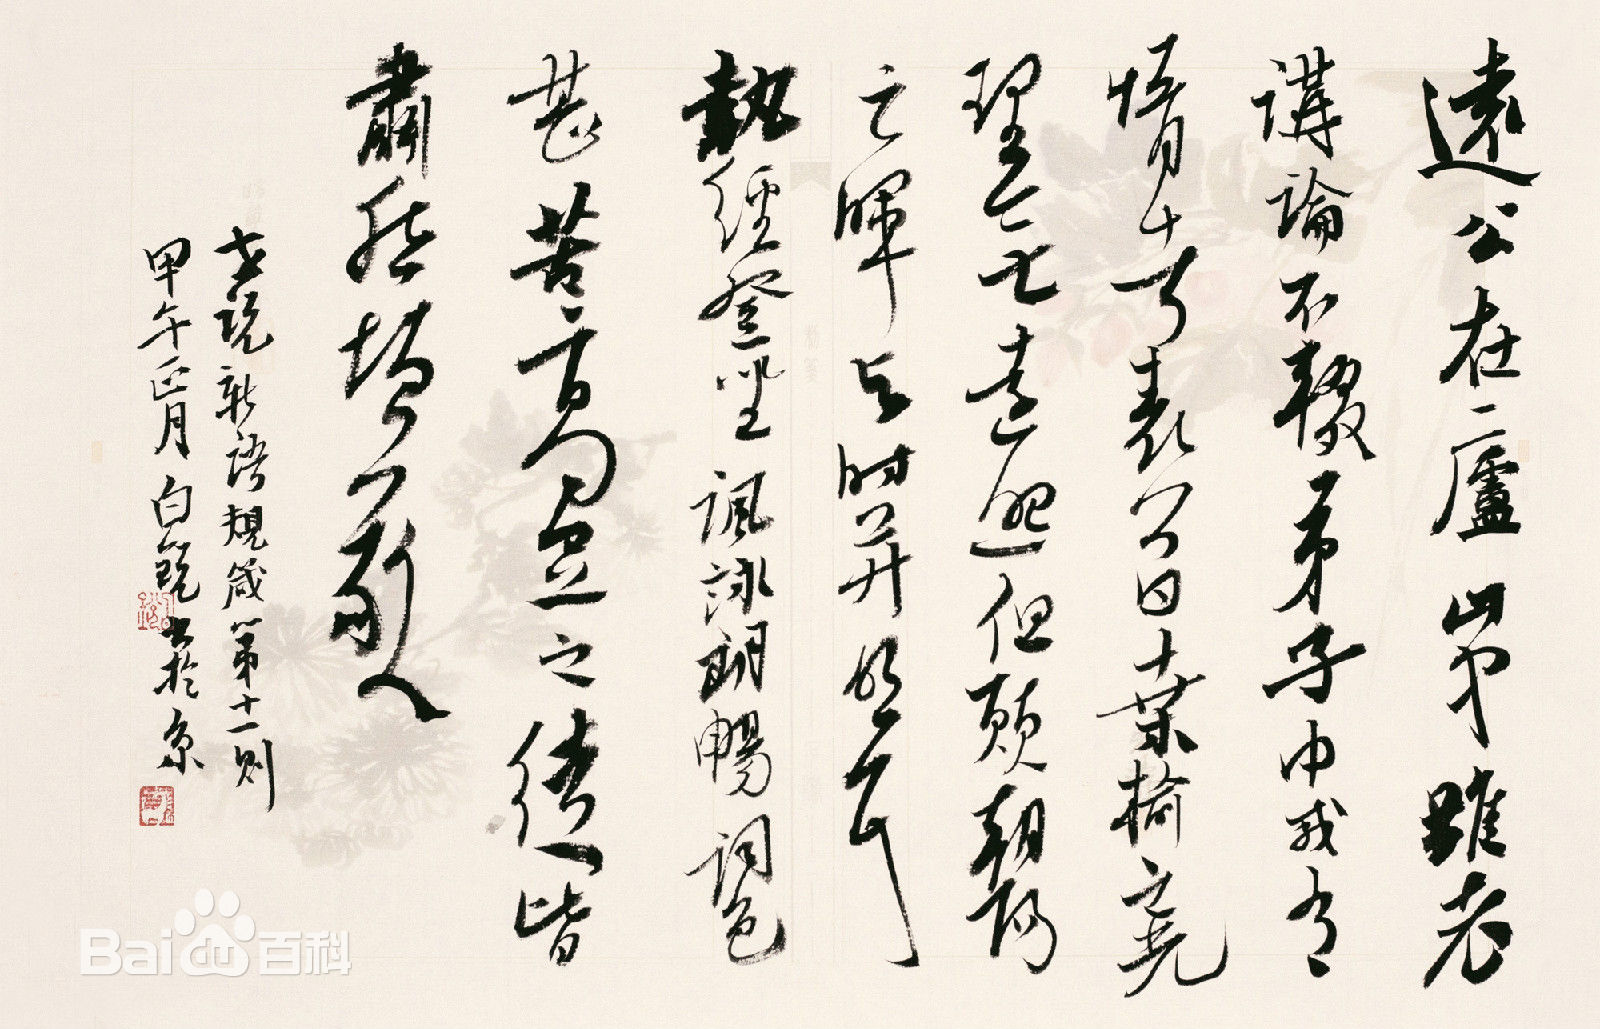 遠公在廬山中雖老
講論不輟弟子中或有
惰者遠公曰桑榆之光
理无遠照但願朝陽
之暉与時并明耳
執經登坐諷詠朗暢詞色
甚苦高足之徒皆
肅然增敬
世說新語規箴第十一則
甲午正月白銳書於京
Baidu百科